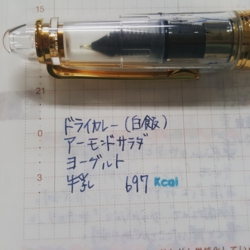 15
18
21
0
3
ドライカレー(白飯)
アーモンドサラダ
ヨーグルト
牛乳 697 Kcal